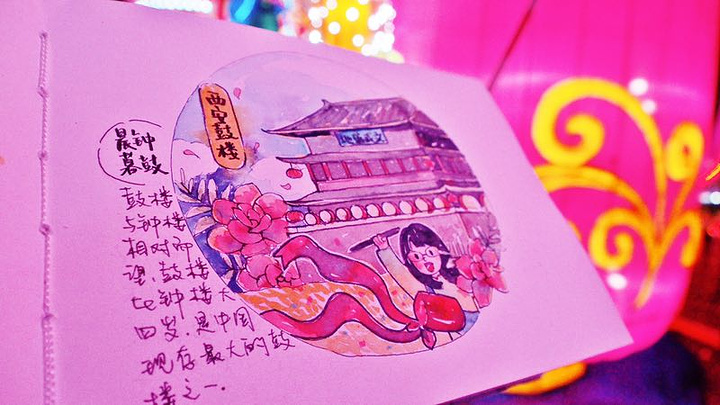 西安鼓楼
晨钟
暮鼓
鼓楼
与钟楼
相对而
望,鼓楼
比钟楼大
四岁,是中国
现存最大的鼓
楼之一.